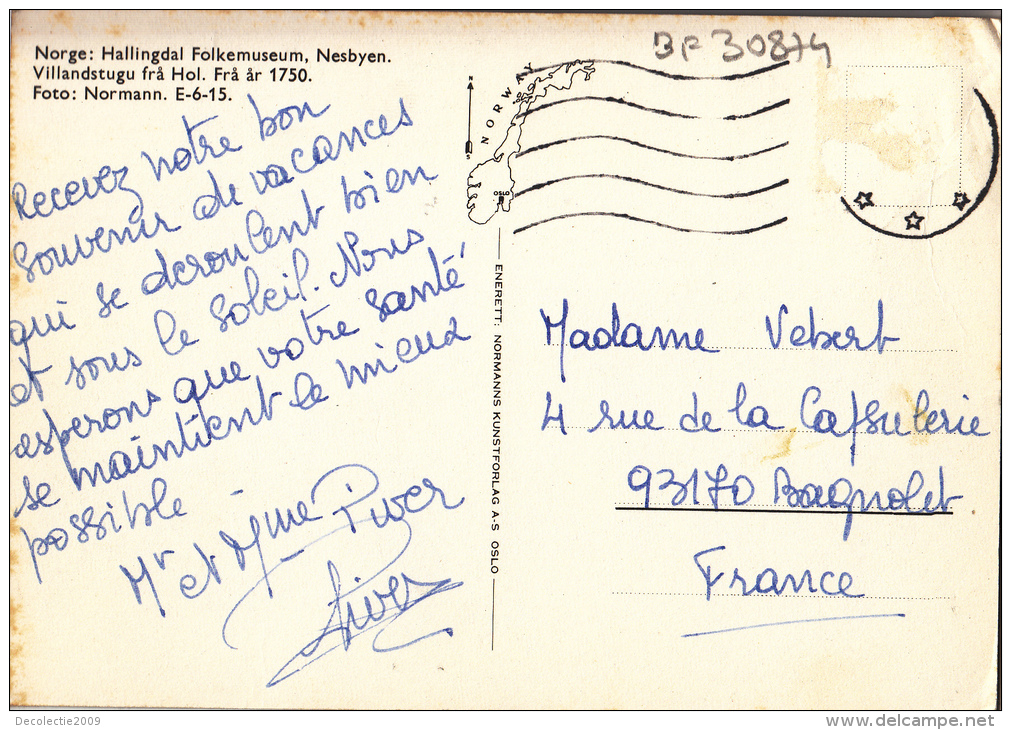 Norge: Hallingdal Folkemuseum, Nesbyen.
Villandstugu frå Hol. Frå år 1750.
Foto: Normann. E-6-15.
BF 30874
N
S
NORWAY
OSLO
Recevez notre bon
souvenir de vacances
qui se deroulent bien
et sous le soleil. Nous
esperons que votre santé
se maintient le mieux
possible
Mr et Mme Piver
Piver
ENERETT: NORMANNS KUNSTFORLAG A-S OSLO
Madame Vebert
4 rue de la Capsulerie
93170 Bagnolet
France
Decolectie2009
www.delcampe.net